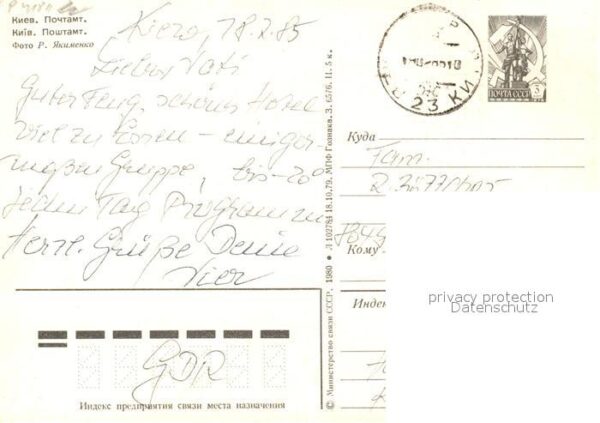 Киев. Почтамт.
Київ. Поштамт.
Фото Р. Якименко
Kiew, 18.2.85
Lieber Vati
Guter Flug, schönes Hotel
viel zu Essen – einiger-
maßen Gruppe, bis -20°
jeden Tag Programm
Herzl. Grüße Deine
Vier
GDR
Индекс предприятия связи места назначения
© Министерство связи СССР. 1980 ● Л 102781 18.10.79. МПФ Гознака. З. 6576. Ц. 5 к.
23 КИ
ПОЧТА СССР 3
Куда
Fam.
Кому
Индек
privacy protection
Datenschutz